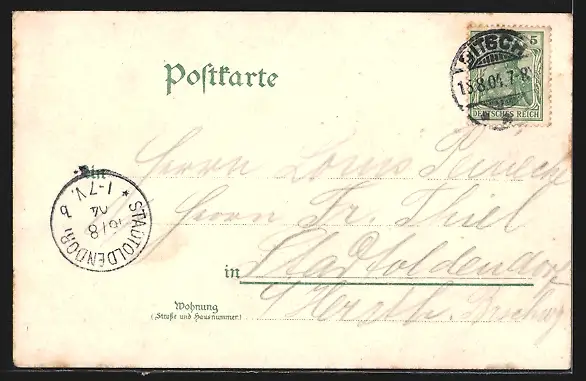 BITSCH
5
15.8.04. 7-8
DEUTSCHES REICH
Postkarte
An
Herrn Louis
Herrn Fr. Thiel
in Stadtoldendorf
Wohnung
(Straße und Hausnummer)
* STADTOLDENDORF b
1-7V.
16/8
04